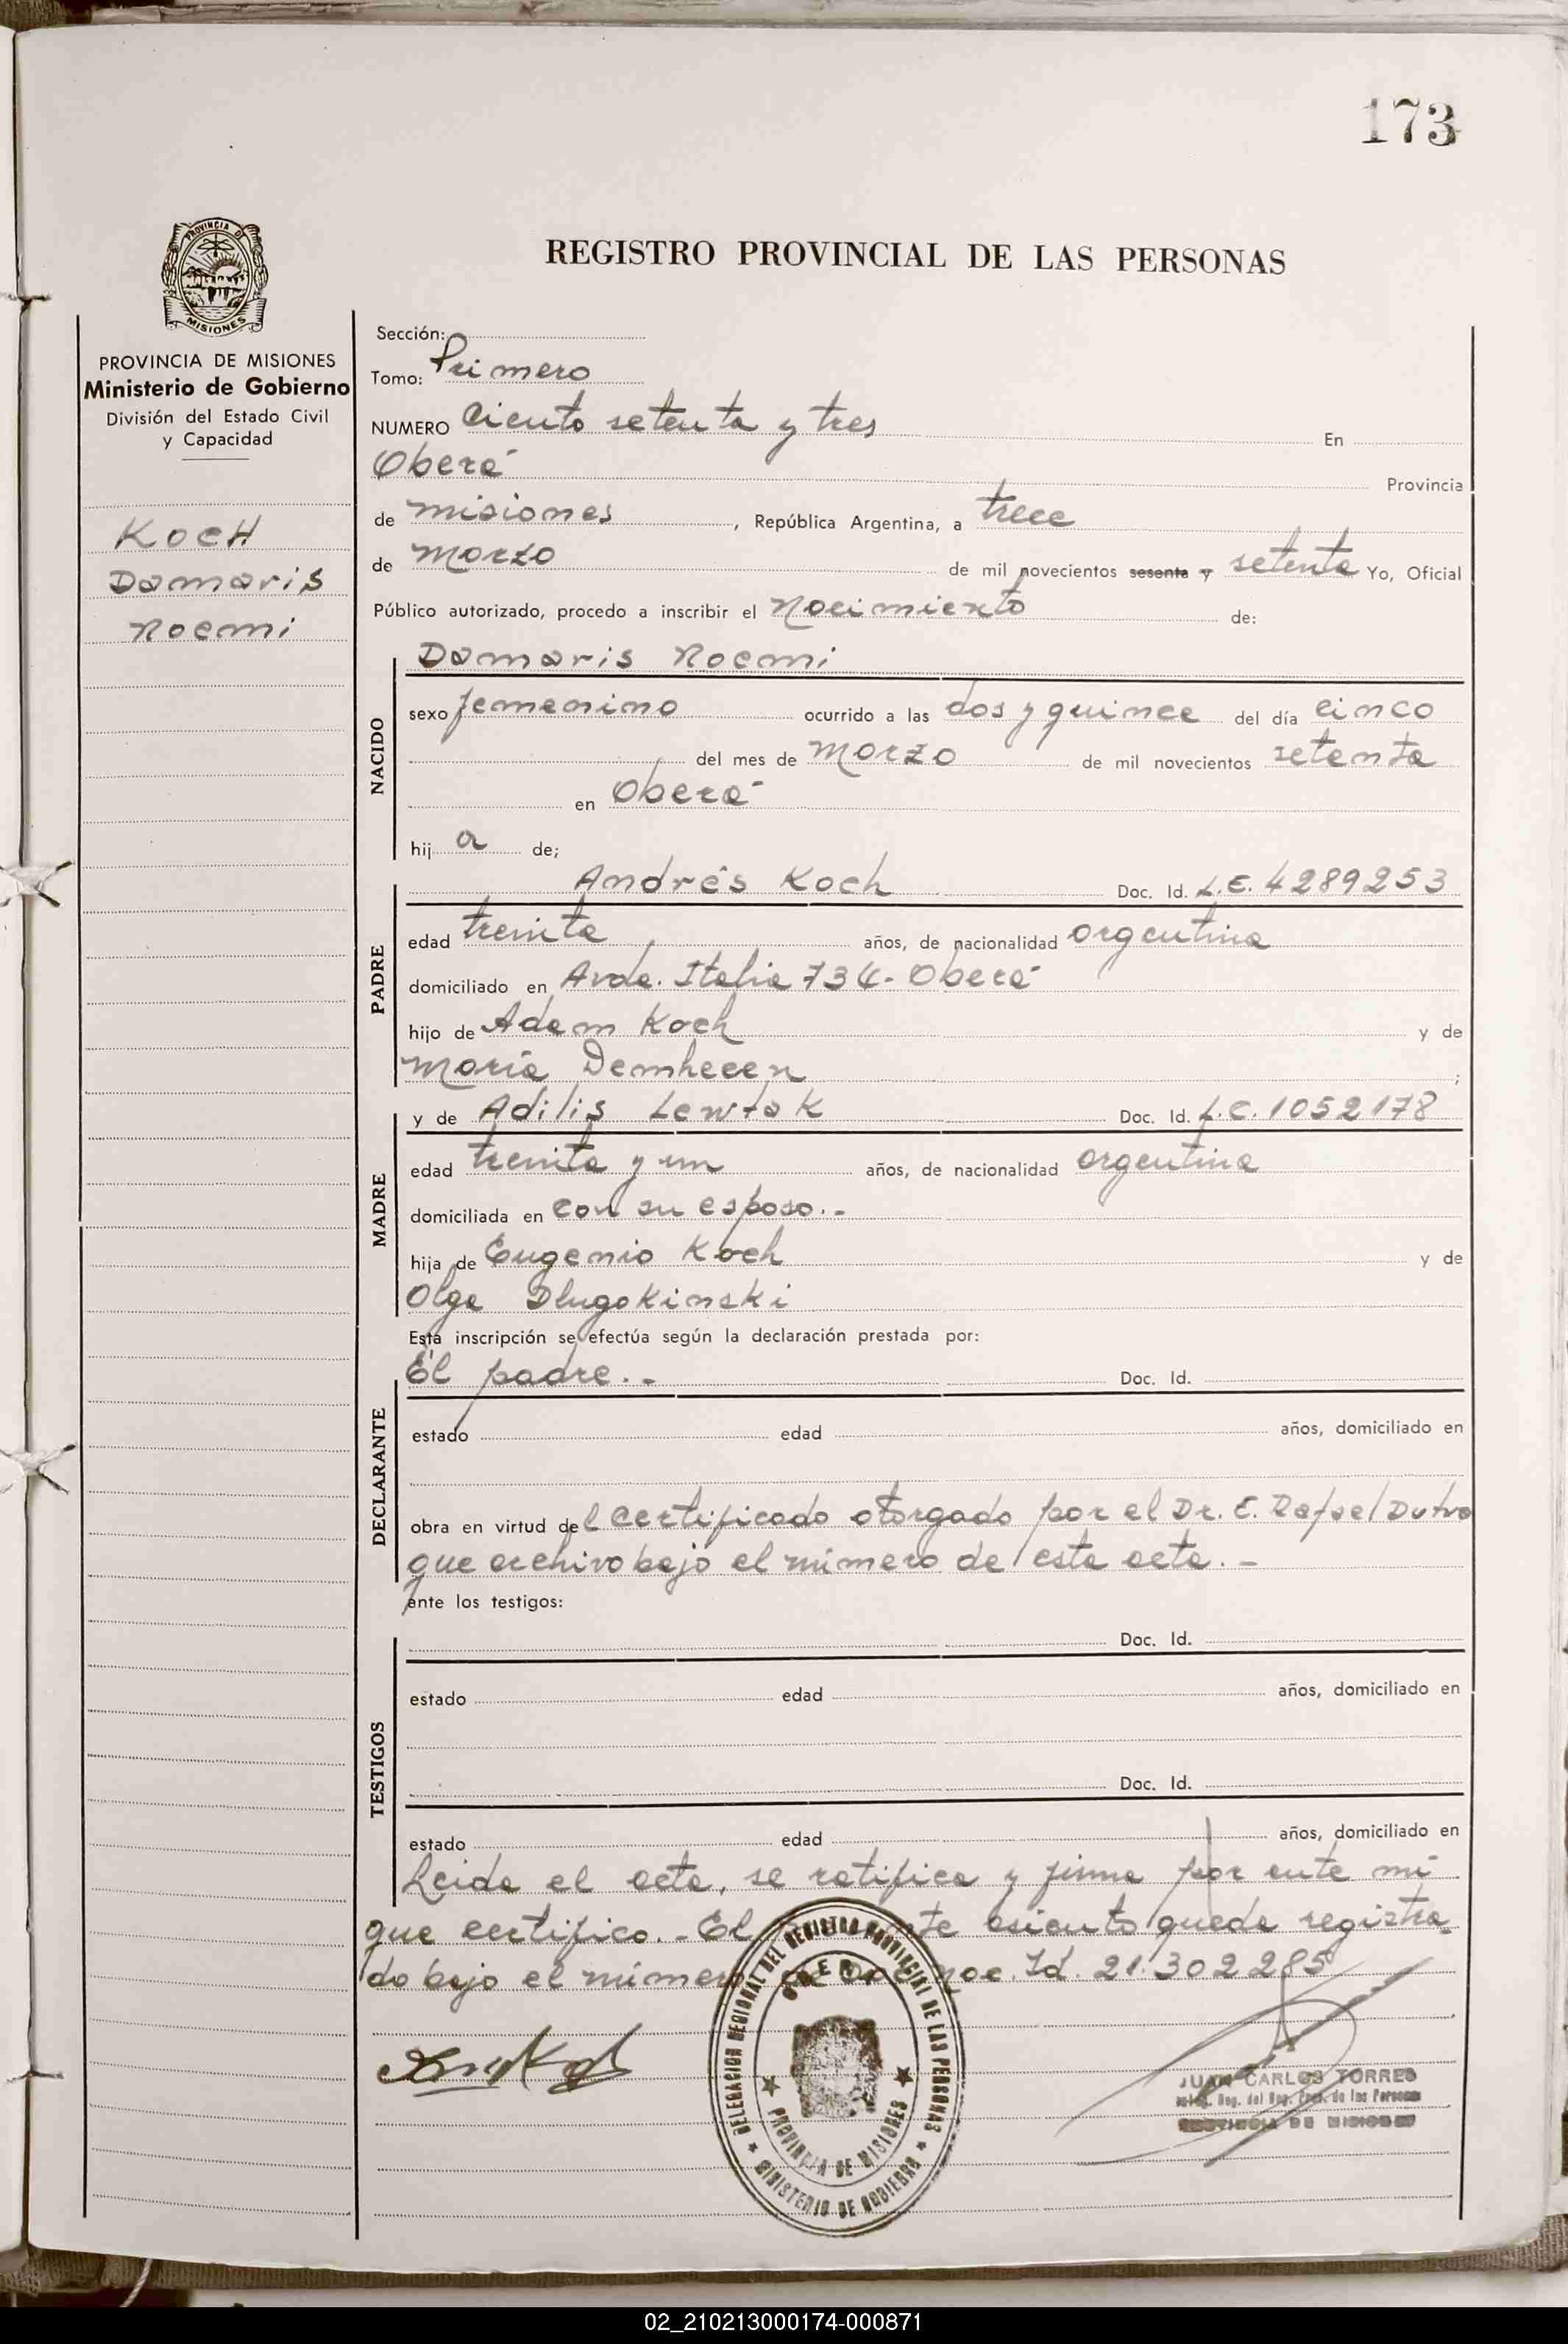 173
PROVINCIA DE MISIONES
REGISTRO PROVINCIAL DE LAS PERSONAS
PROVINCIA DE MISIONES
Ministerio de Gobierno
División del Estado Civil
y Capacidad
KOCH
Damaris
Noemi
Sección:
Tomo: Primero
NUMERO Ciento setenta y tres En
Oberá Provincia
de Misiones, República Argentina, a trece
de Marzo de mil novecientos sesenta y setenta Yo, Oficial
Público autorizado, procedo a inscribir el Nacimiento de:
NACIDO
Damaris Noemi
sexo femenino ocurrido a las dos y quince del día cinco
del mes de Marzo de mil novecientos setenta
en Oberá
hija de;
PADRE
Andrés Koch Doc. Id. L.E. 4289253
edad treinta años, de nacionalidad argentina
domiciliado en Avda. Italia 734- Oberá
hijo de Adam Koch y de
María ;
MADRE
y de Adilis Lewtak Doc. Id. L.C. 1052178
edad treinta y un años, de nacionalidad argentina
domiciliada en con su esposo.-
hija de Eugenio Koch y de
Olga Dlugokinski
Esta inscripción se efectúa según la declaración prestada por:
DECLARANTE
El padre.- Doc. Id.
estado edad años, domiciliado en
obra en virtud del certificado otorgado por el Dr. E. Rafael Dutra
que archivo bajo el número de esta acta.-
ante los testigos:
TESTIGOS
Doc. Id.
estado edad años, domiciliado en
Doc. Id.
estado edad años, domiciliado en
Leida el acta, se ratifica y firma por ante mí
que certifico.- El asiento queda registra
do bajo el número Id. 21.302.285
DELEGACION REGIONAL DEL REGISTRO PROVINCIAL DE LAS PERSONAS
OBERA
PROVINCIA DE MISIONES
MINISTERIO DE GOBIERNO
JUAN CARLOS TORRES
Reg. del Reg. Prov. de las Personas
PROVINCIA DE MISIONES
02_210213000174-000871